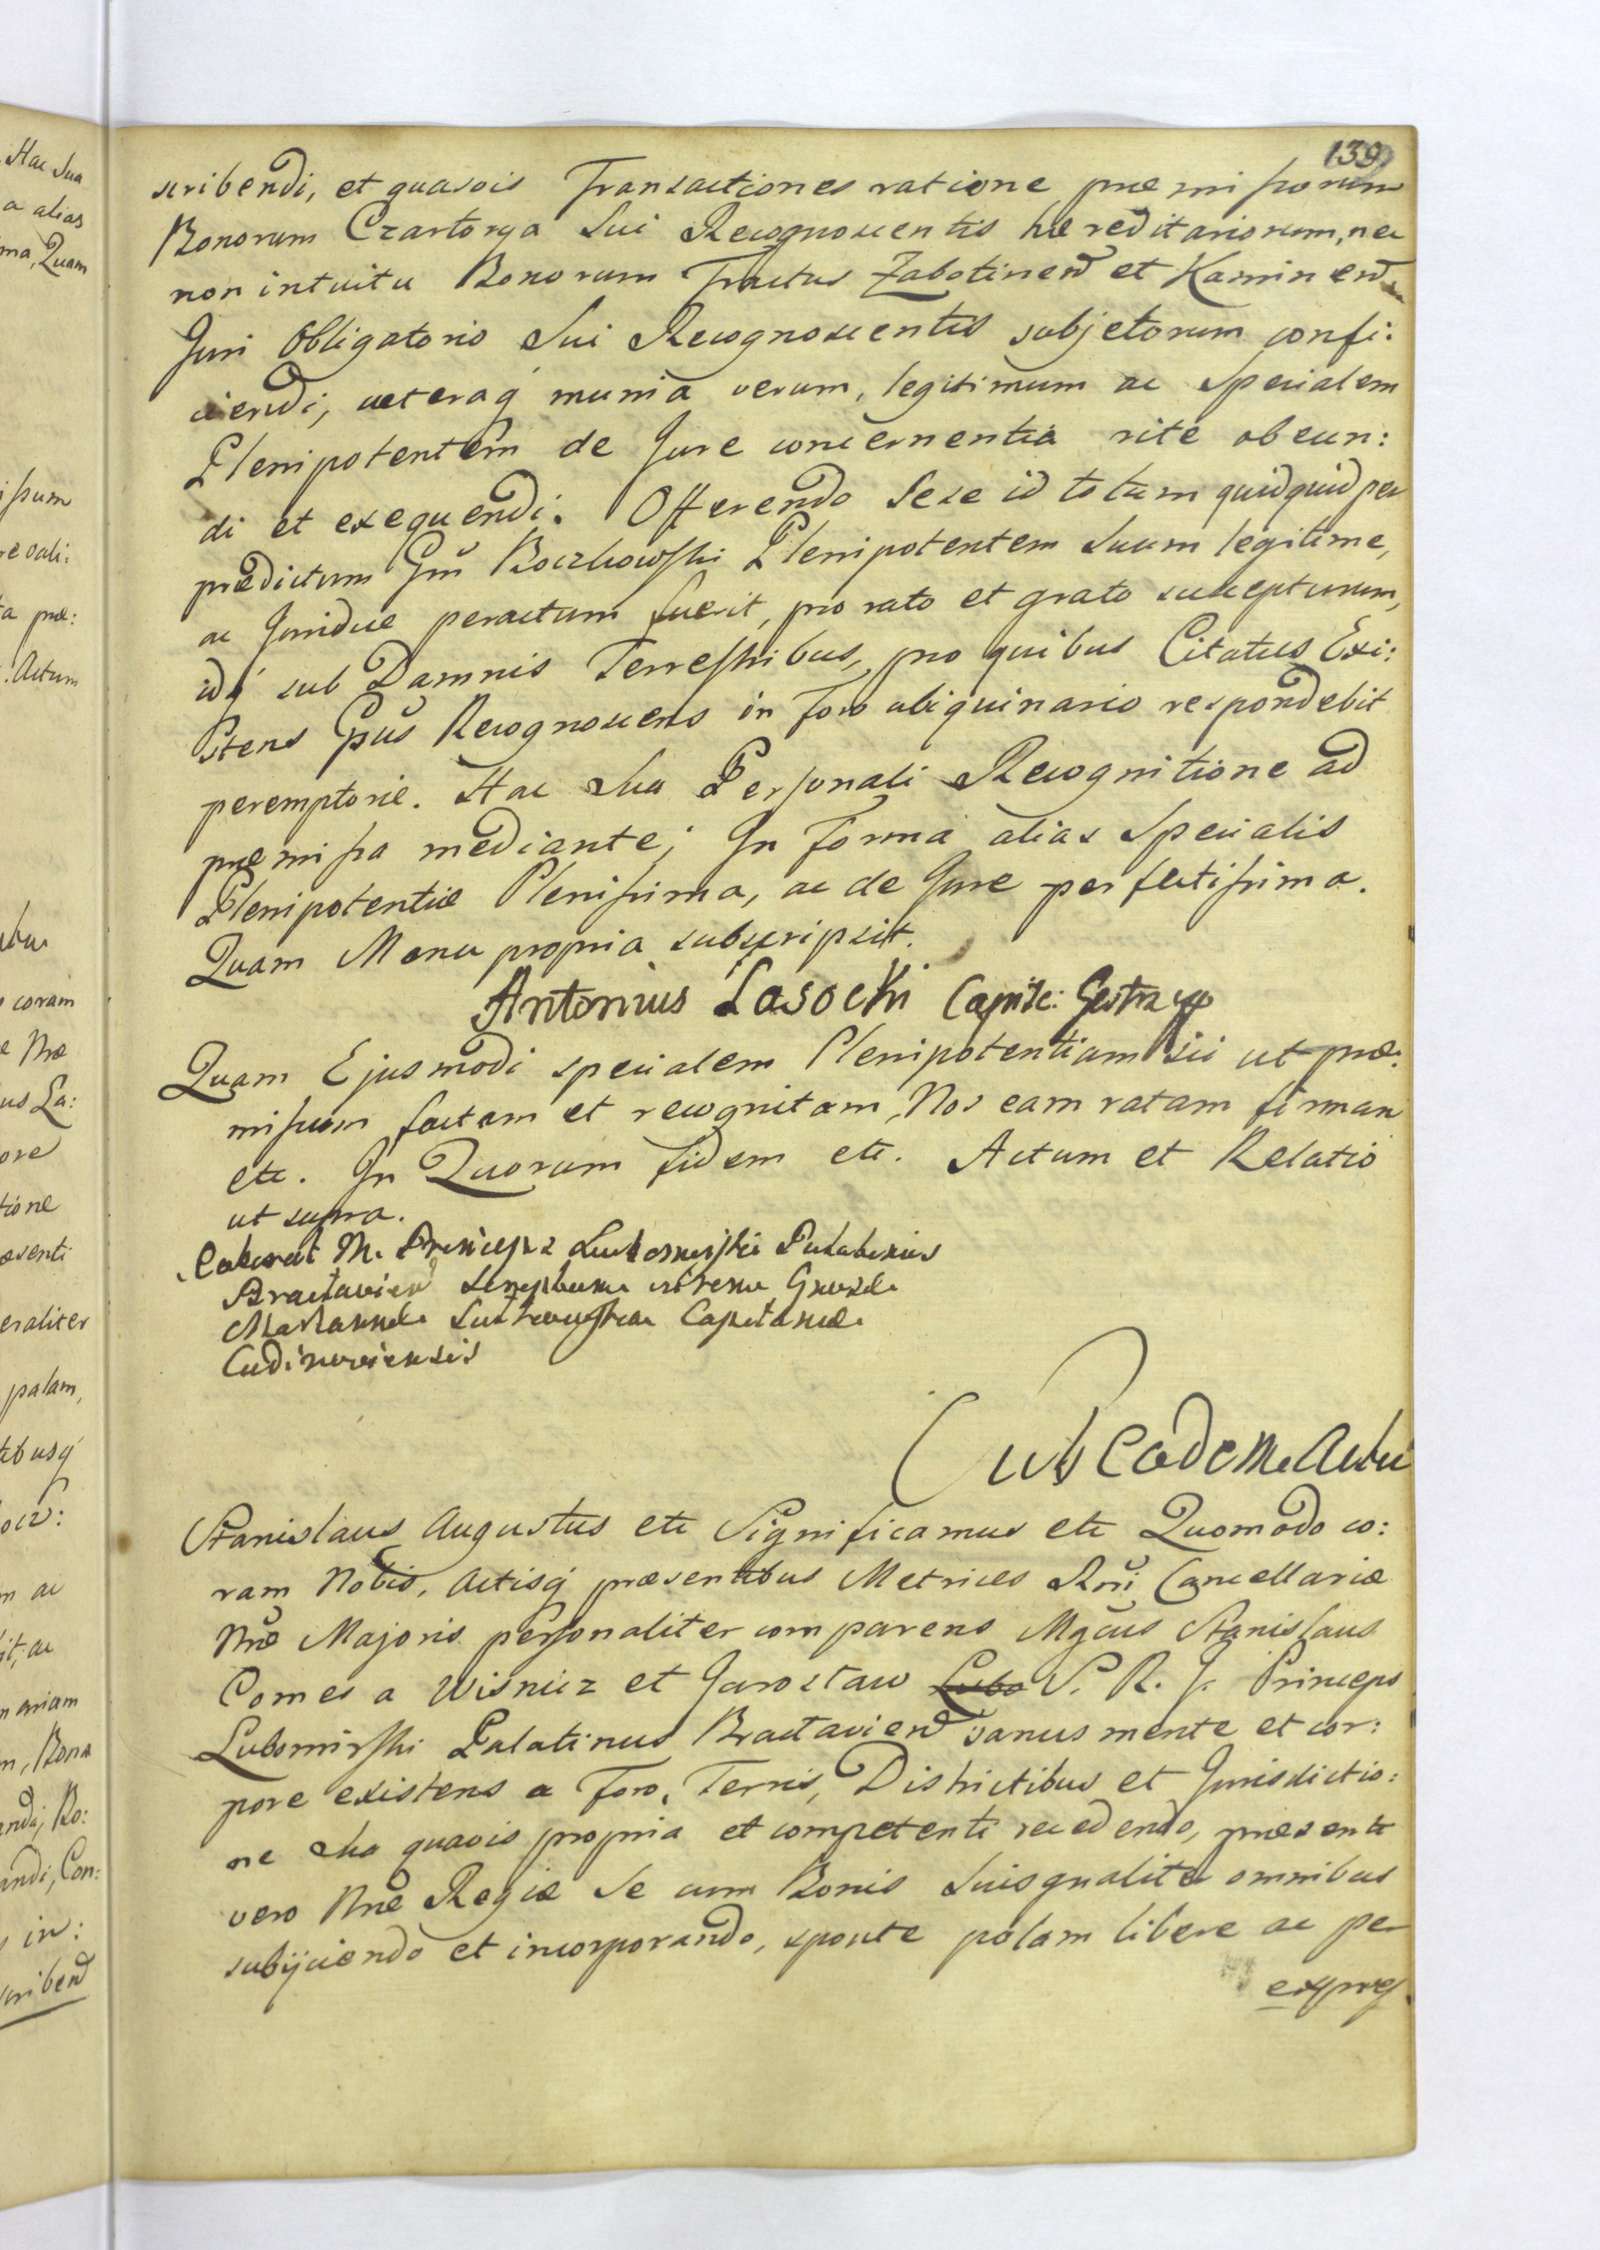 139
scribendi, et quasvis Transactiones ratione præmissorum
Bonorum Czartorya Sui Recognoscentis hæreditariorum, nec
non intuitu Bonorum Tractus Zabotinen et Kaminen
Juri Obligatorio Sui Recognoscentis subjectorum confi:
ciendi, cæteraq munia verum, legitimum ac Specialem
Plenipotentem de Jure concernentia rite obeun:
di et exequendi. Offerendo Sese id totum quidquid per
prædictum Gnũ Boczkowski Plenipotentem Suum legitime,
ac Juridice peractum fuerit, pro rato et grato suscepturum,
idq sub Damnis Terrestribus, pro quibus Citatus Exi:
stens Gsũs Recognoscens in Foro ubiquinario respondebit
peremptorie. Hac Sua Personali Recognitione ad
præmissa mediante; In Forma alias Specialis
Plenipotentiæ Plenissima, ac de Jure perfectissima.
Quam Manu propria subscripsit.
Antonius Lasocki Capit: Gostn
Quam Ejusmodi specialem Plenipotentiam sic ut præ:
missum factam et recognitam, Nos eam ratam firmam
etc. In Quorum fidem etc. Actum et Relatio
ut supra.
M. Princeps Lubomirski Palatinus
Braclavien
Capitanea
Sub Eodem Actu
Stanislaus Augustus etc Significamus etc Quomodo co:
ram Nobis, Actisq præsentibus Metrices Rñi Cancellariæ
Nræ Majoris personaliter comparens Mgcũs Stanislaus
Comes a Wisnicz et Jaroslaw Lubo S. R. J. Princeps
Lubomirski Palatinus Braclavien sanus mente et cor:
pore existens a Foro, Terris, Districtibus et Jurisdictio:
ne Sua quavis propria et competenti recedendo, præsenti
vero Nræ Regiæ Se cum Bonis Suis qualiter omnibus
subijciendo et incorporando, sponte palam libere ac per
expres